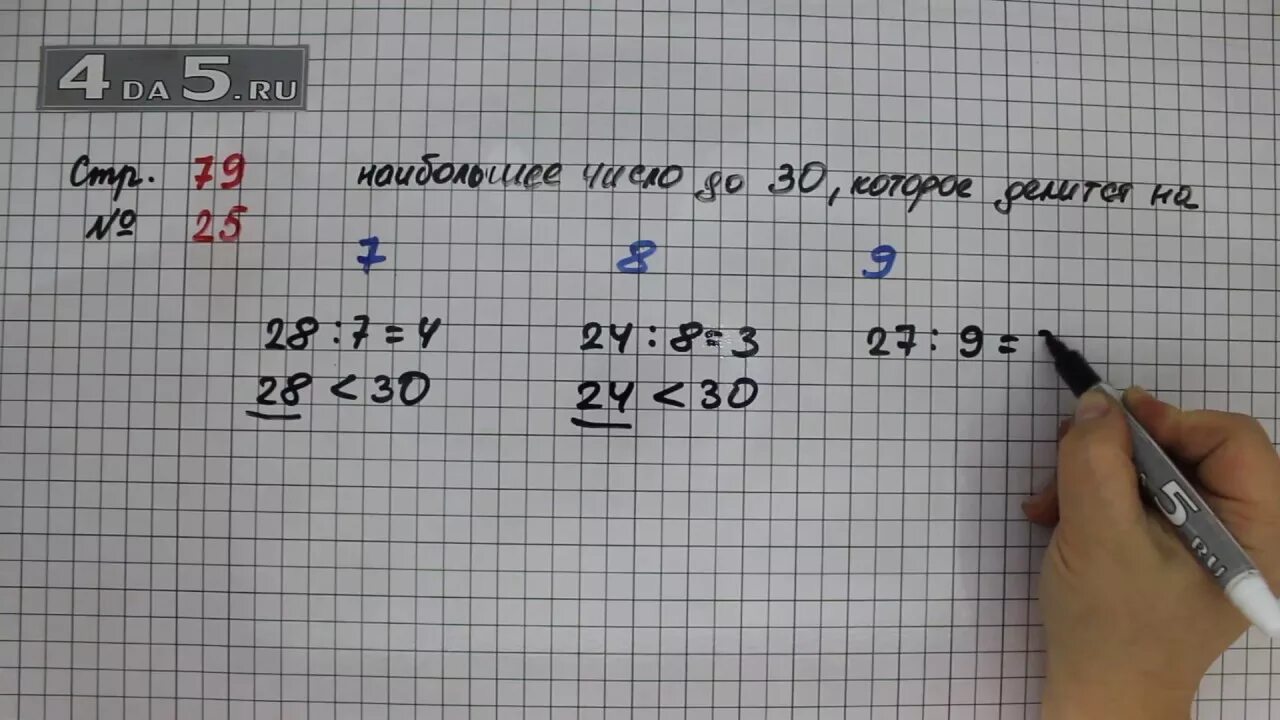 4DA5.RU
Стр. 79 наибольшее число до 30, которое делится на
№ 25
7 8 9
28 : 7 = 4 24 : 8 = 3 27 : 9 =
28 < 30 24 < 30
5.RU